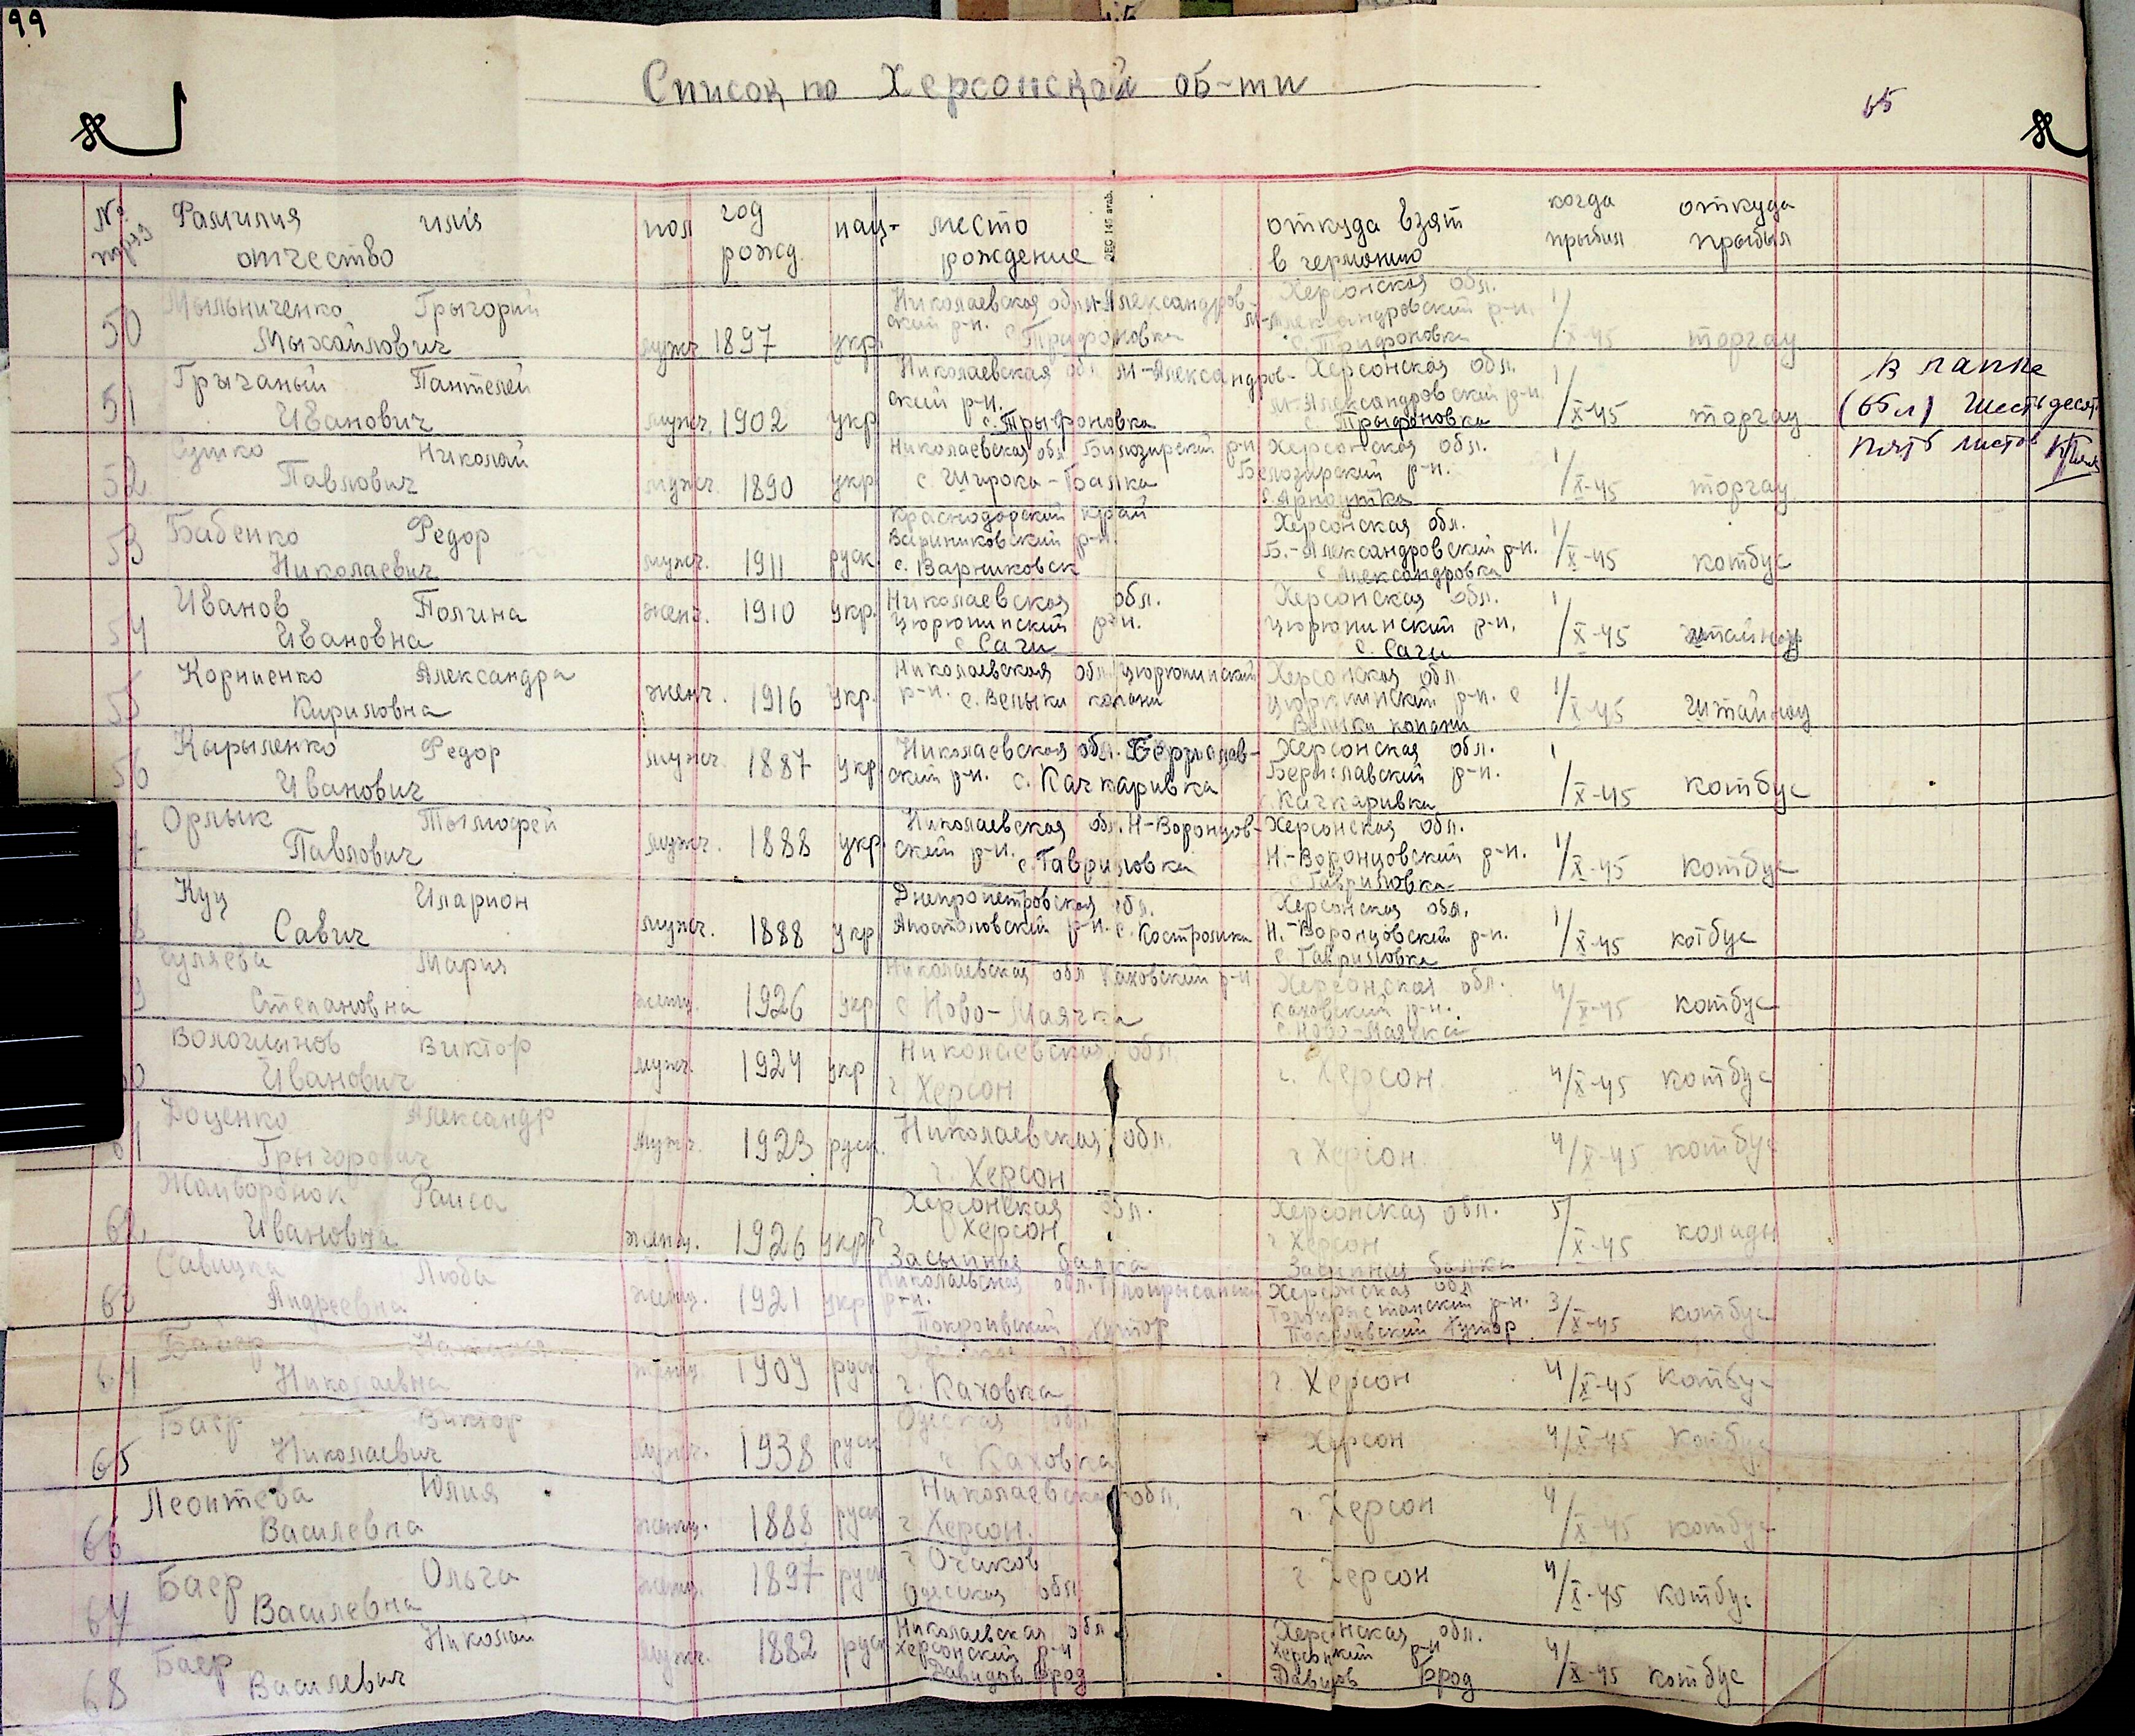 99
Список по Херсонской об-ти
65
№ Фамилия имя пол год нац- место откуда взят когда откуда
отчество рожд. рождение в германию прибил прыбыл
50 Мыльниченко Грыгорий Николаевская обл. М-Александров- Херсонская обл. 1/
Мыхайлович мужч 1897 укр. ский р-н. с. Трифоновка М-Александровский р-н. с. Трифоновка X-45 торгау
51 Грычаный Пантелей Николаевская обл М-Александров- Херсонская обл. 1/
Иванович мужч. 1902 укр ский р-н. с. Трыфоновка М-Александровский р-н. с. Трыфоновка X-45 торгау
В папке
(65л) шестьдесят
пять листов
52 Сушко Николай Николаевская обл Билозирский р-н Херсонская обл. 1/
Павлович мужч. 1890 укр с. Широка-Балка Белозирский р-н. с. Арнаутка X-45 торгау
53 Бабенко Федор Краснодарский край Херсонская обл. 1/
Николаевич мужч. 1911 руск Варниковский р-н. с. Варниковск Б.-Александровский р-н. с. Александровка X-45 котбус
54 Иванов Полина женч. 1910 укр. Николаевская обл. Херсонская обл. 1/
Ивановна цюрюпинский р-н. с. Саги цюрюпинский р-н. с. Саги X-45
55 Корниенко Александра Николаевская обл. цюрюпинский Херсонская обл 1/
Кириловна женч. 1916 укр. р-н. с. Велыки копани цюрюпинский р-н. с Велыки копани X-45
56 Кырыленко Федор мужч. 1887 укр Николаевская обл. Берислав- Херсонская обл. 1
Иванович ский р-н. с. Качкаривка Бериславский р-н. с. Качкаривка /X-45 котбус
Орлык Тымофей Николаевская обл. Н-Воронцов- Херсонская обл. 1/
Павлович мужч. 1888 укр ский р-н. с. Гавриловка Н.-Воронцовский р-н. с. Гавриловка X-45 котбус
Куц Иларион Днепропетровская обл. Херсонская обл. 1/
Савич мужч. 1888 укр Апостоловский р-н. с. Костромка Н.-Воронцовский р-н. с. Гавриловка X-45 котбус
9 Гуляева Мария Николаевская обл Каховский р-н Херсонская обл. 4/
Степановна женщ. 1926 укр с Ново-Маячка каховский р-н. с Ново-Маячка X-45 котбус
Вологманов Виктор Николаевская обл.
Иванович мужч. 1924 укр г Херсон г. Херсон 4/X-45 котбус
61 Доценко Александр Николаевская обл.
Грыгорович мужч. 1923 руск. г. Херсон г Херсон 4/X-45 котбус
62 Жайворонок Раиса Херсонская обл. Херсонская обл. 5/
Ивановна женщ. 1926 укр. г Херсон Засыпная балка г Херсон Засыпная балка X-45
63 Савицка Люба Николаевская обл. Херсонская обл
Андреевна женщ. 1921 укр р-н. Покровский Хутор р-н. Покровский Хутор 3/X-45 котбус
64 Баер
Николаевна женщ. 1909 руск г. Каховка г. Херсон 4/X-45 котбус
65 Баер Виктор Одеская обл.
Николаевич мужч. 1938 руск г. Каховка Херсон 4/X-45 котбус
66 Леонтева Юлия Николаевская обл.
Василевна женщ. 1888 руск г Херсон. г. Херсон 4/X-45 котбус
67 Баер Ольга г Очаков
Василевна женщ. 1897 руск Одесская обл г. Херсон 4/X-45 котбус
68 Баер Николай Николаевская обл Херсонская обл.
Василевич мужч. 1882 руск Херсонский р-н Давидов Брод Херсонский р-н Давидов Брод 4/X-45 котбус